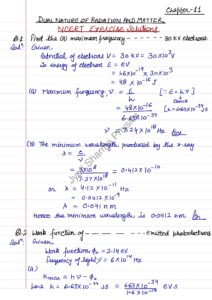 Chapter-11
DUAL NATURE OF RADIATION AND MATTER
NCERT Exercise Solutions
Q.1 Find the (a) maximum frequency ------ 30 KV electrons
Solⁿ. Given,
Potential of electrons V = 30 KV = 30×10³ V
So energy of electrons E = eV
= 1.6×10⁻¹⁹ × 30×10³
= 48 × 10⁻¹⁶ J
(a) Maximum frequency, ν = E/h
= 48×10⁻¹⁶ / 6.63×10⁻³⁴
(b) The minimum wavelength produced by the x-ray
λ = c/ν
= 0.0412×10⁻⁹
λ = 0.041 nm
Hence the minimum wavelength is 0.0412 nm
Q.2 Work function of ------ emitted photoelectrons
Solⁿ. Given,
Work function ϕ₀ = 2.14 eV
Frequency of light ν = 6×10¹⁴ Hz
(a)
Kmax = hν − ϕ₀